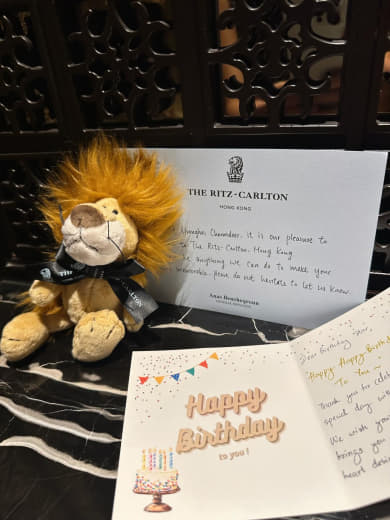 THE RITZ-CARLTON
HONG KONG
it is our pleasure to
The Ritz-Carlton, Hong Kong
anything we can do to make your
please do not hesitate to let us know.
GENERAL MANAGER
THE
Happy
Birthday
to you!
Dear Birthday Star,
Happy Happy Birth
To You ~
Thank you for
special day wi
We wish you
brings you
heart desir